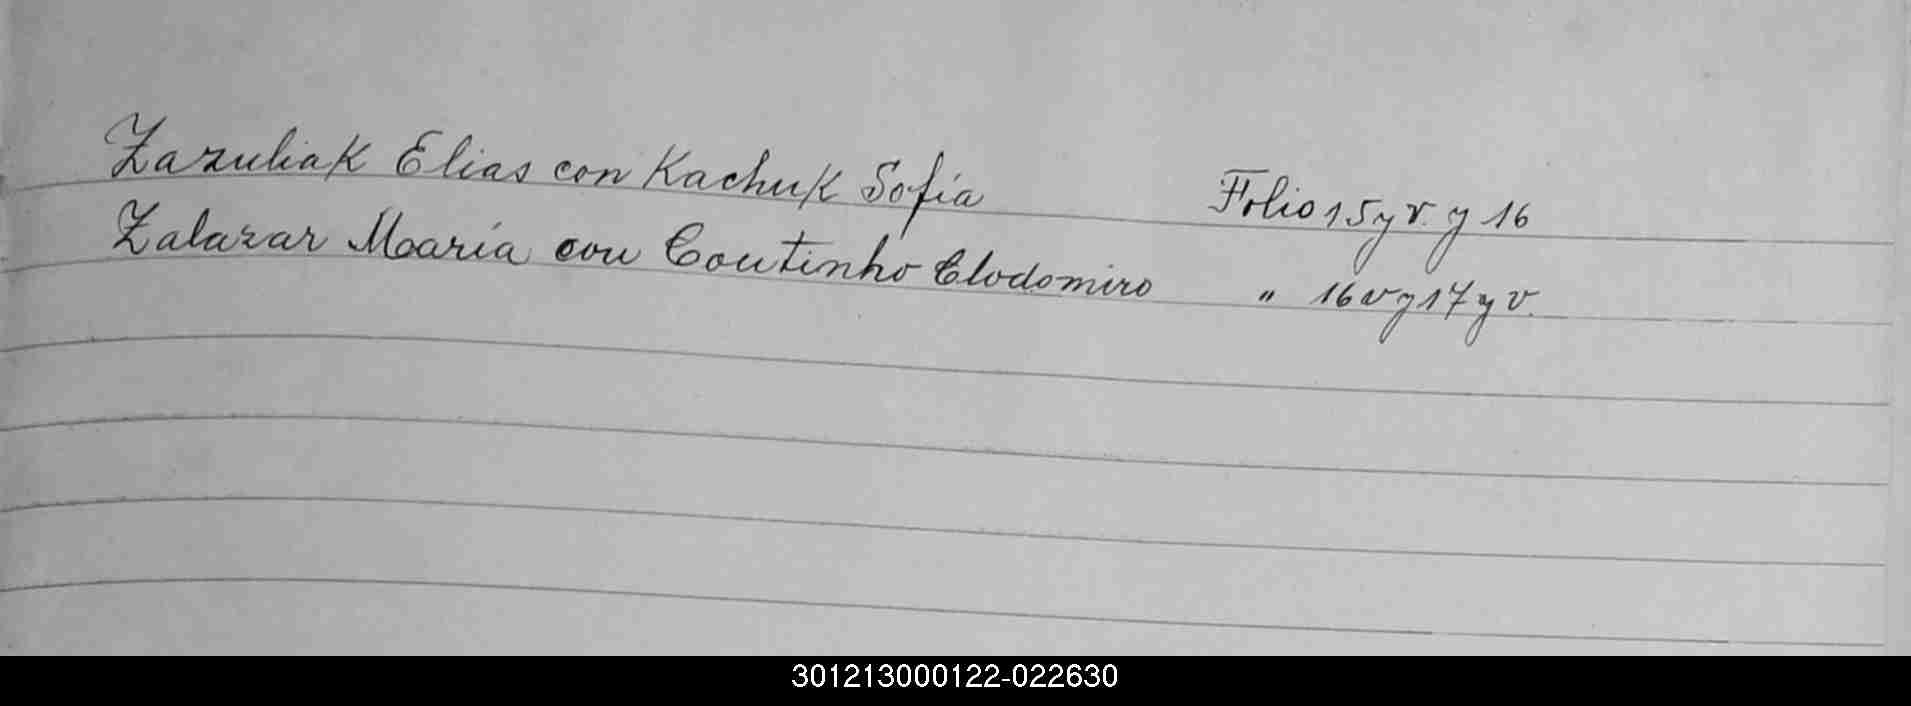 Zazuliak Elias con Kachuk Sofía Folio 15 y v. y 16
Zalazar María con Coutinho Clodomiro " 16 v y 17 y v.
301213000122-022630